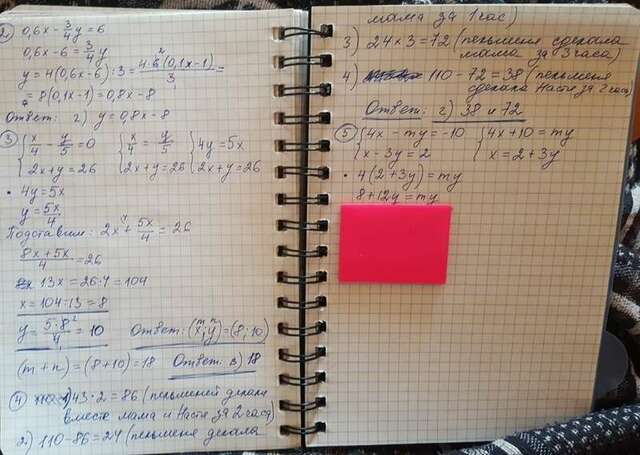 2) 0,6x - 3/4 y = 6
0,6x - 6 = 3/4 y
y = 4(0,6x-6):3 = 4·6(0,1x-1)/3 =
2
= 8(0,1x-1) = 0,8x - 8
Ответ: г) y = 0,8x - 8
3) { x/4 - y/5 = 0 { x/4 = y/5 { 4y = 5x
2x+y=26 2x+y=26 2x+y=26
• 4y = 5x
y = 5x/4
Подставим: 2x + 5x/4 = 26
8x+5x/4 = 26
13x = 26·4 = 104
x = 104:13 = 8
y = 5·8/4 = 10 Ответ: (x;y) = (8;10)
(m+n) = (8+10) = 18 Ответ: в) 18
4) 1) 43·2 = 86 (пельменей делали
вместе мама и Настя за 2 часа)
2) 110-86 = 24 (пельменя делала
мама за 1 час)
3) 24×3 = 72 (пельменя сделала
мама за 3 часа)
4) 110-72 = 38 (пельменя
сделала Настя за 2 часа)
Ответ: г) 38 и 72
5) { 4x - my = -10 { 4x+10 = my
x - 3y = 2 x = 2+3y
• 4(2+3y) = my
8+12y = my